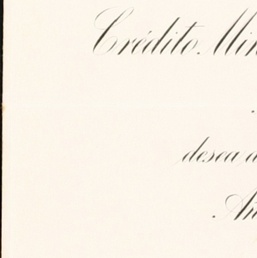 Crédito Min
desea a
Añ